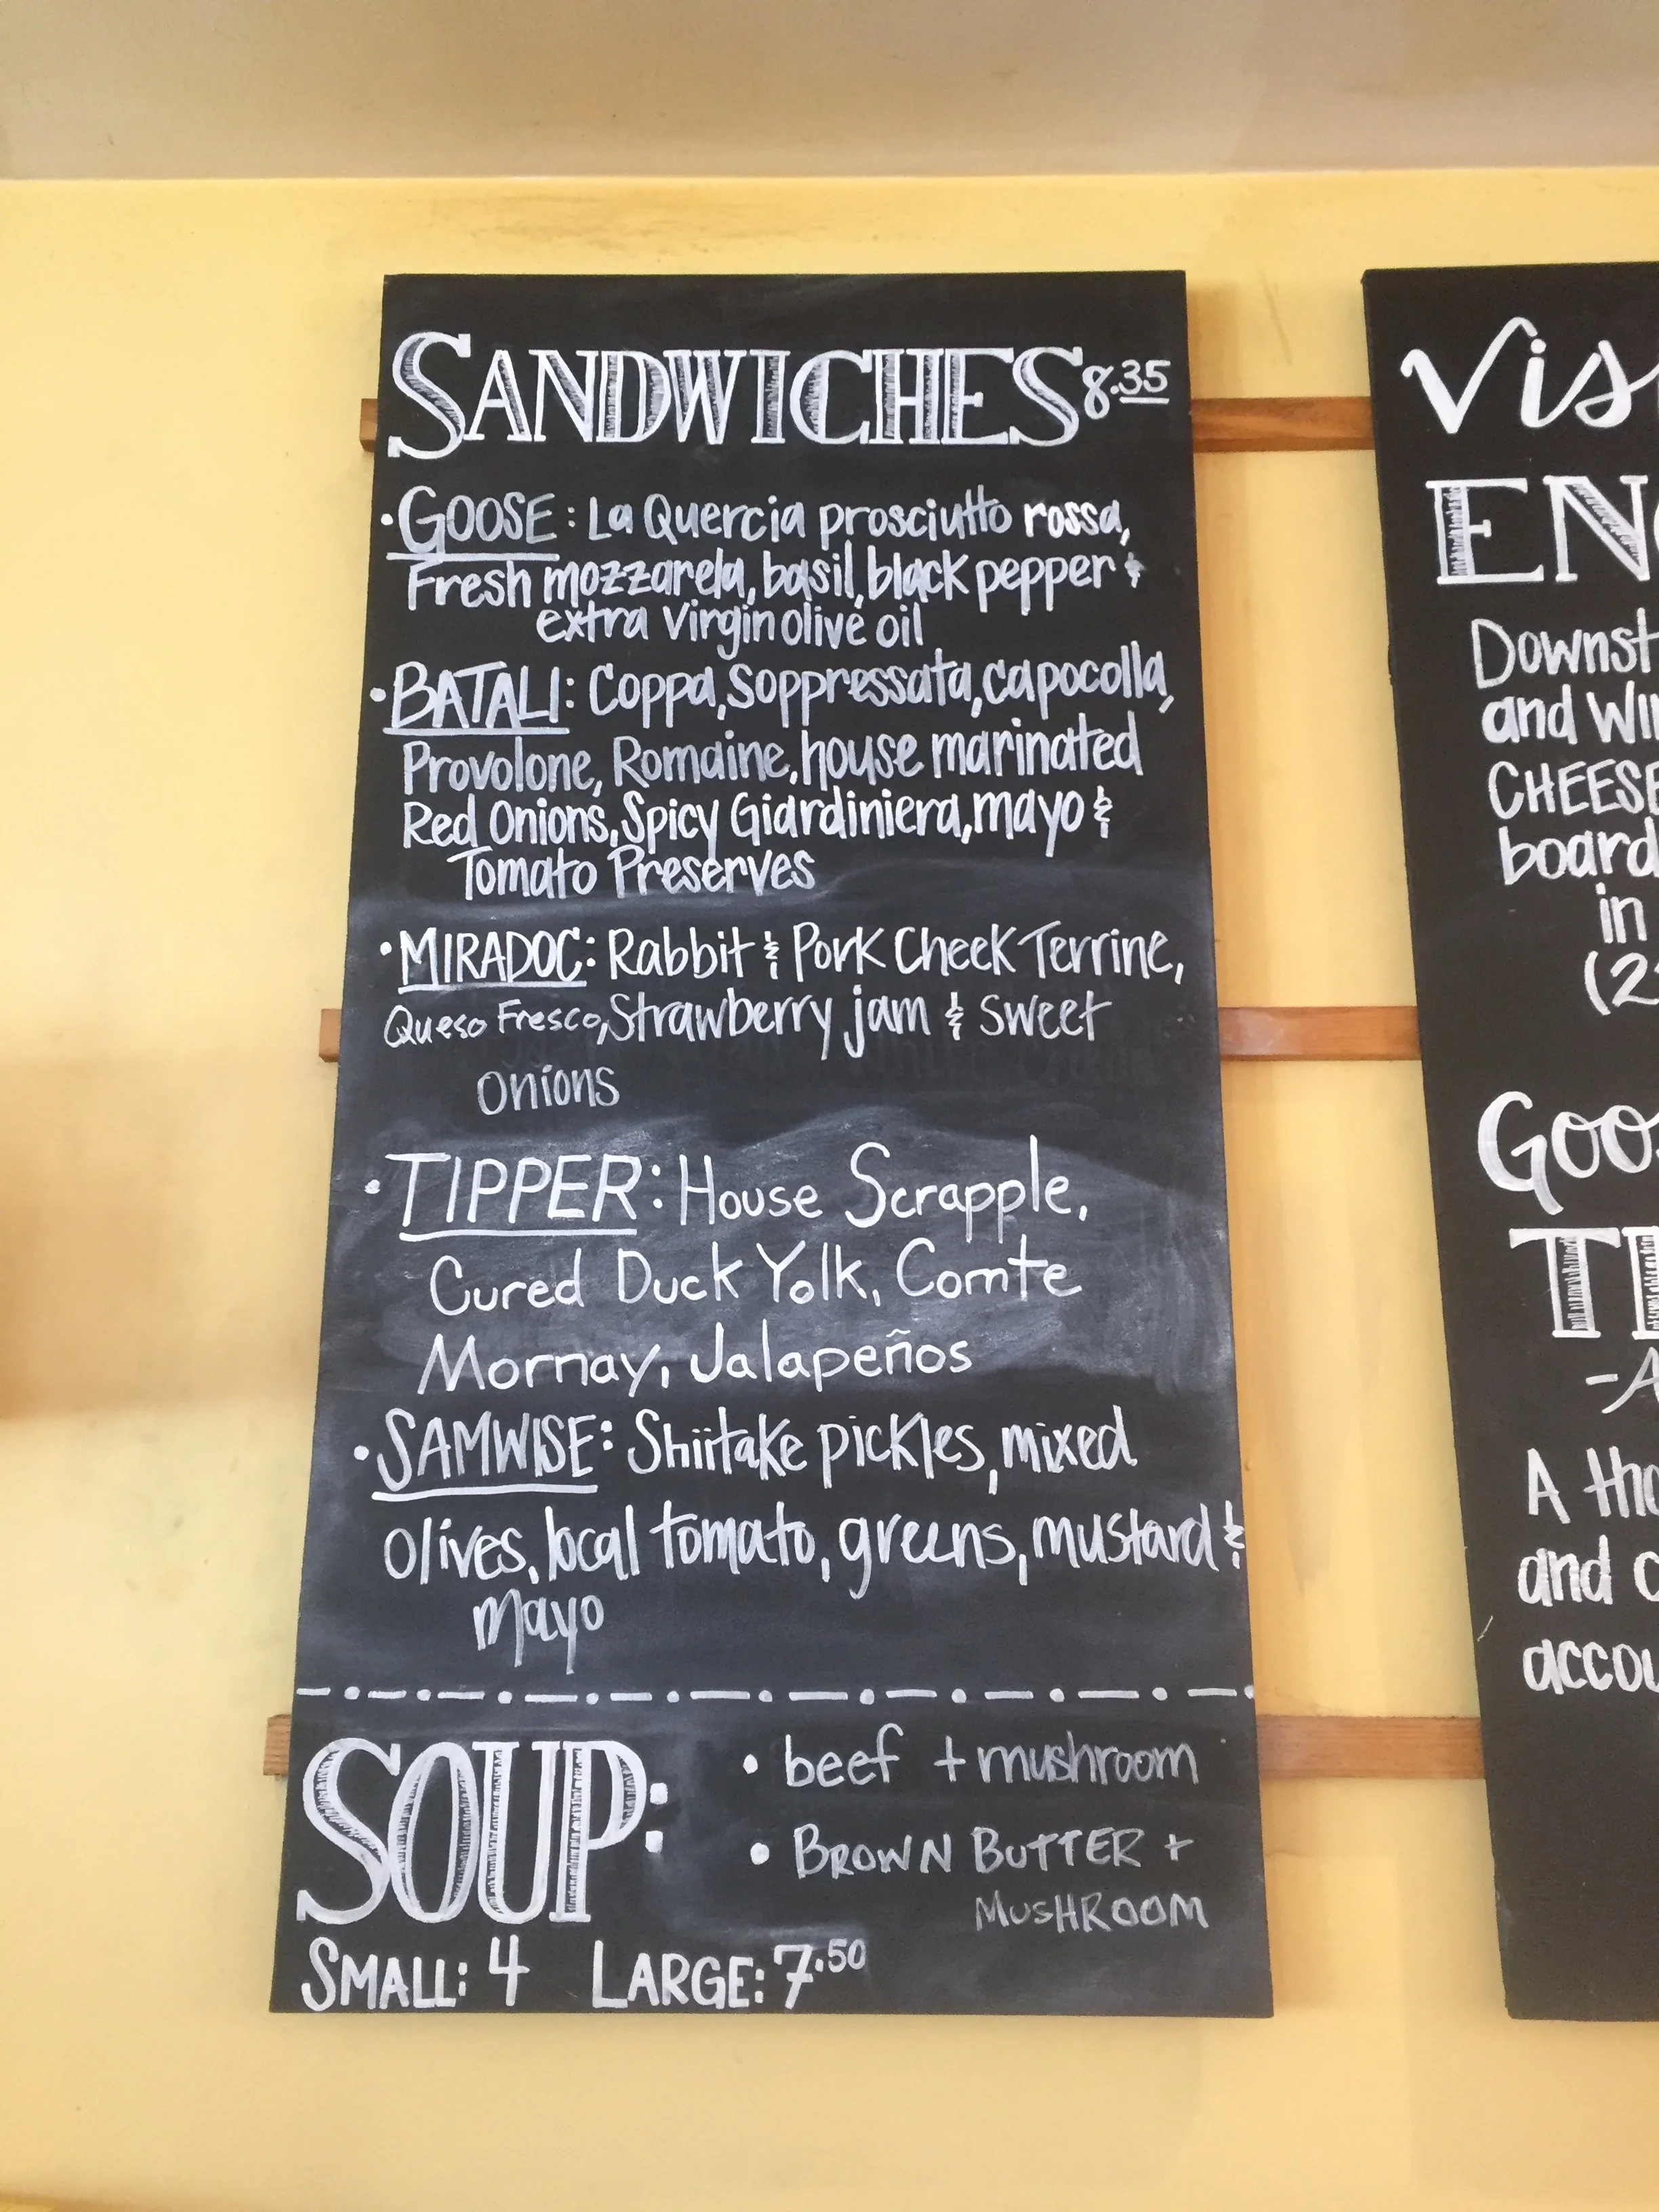 SANDWICHES 8.35
• GOOSE: La Quercia prosciutto rossa,
Fresh mozzarela, basil, black pepper &
extra virgin olive oil
• BATALI: Coppa, Soppressata, capocolla,
Provolone, Romaine, house marinated
Red Onions, Spicy Giardiniera, mayo &
Tomato Preserves
• MIRADOC: Rabbit & Pork Cheek Terrine,
Queso Fresco, Strawberry jam & sweet
onions
• TIPPER: House Scrapple,
Cured Duck Yolk, Comte
Mornay, Jalapeños
• SAMWISE: Shiitake pickles, mixed
olives, local tomato, greens, mustard &
mayo
SOUP:
• beef + mushroom
• BROWN BUTTER +
MUSHROOM
SMALL: 4 LARGE: 7.50
Vis
EN
Downst
and Wi
CHEESE
board
in
(2
Goo
T
-A
A tho
and c
accou